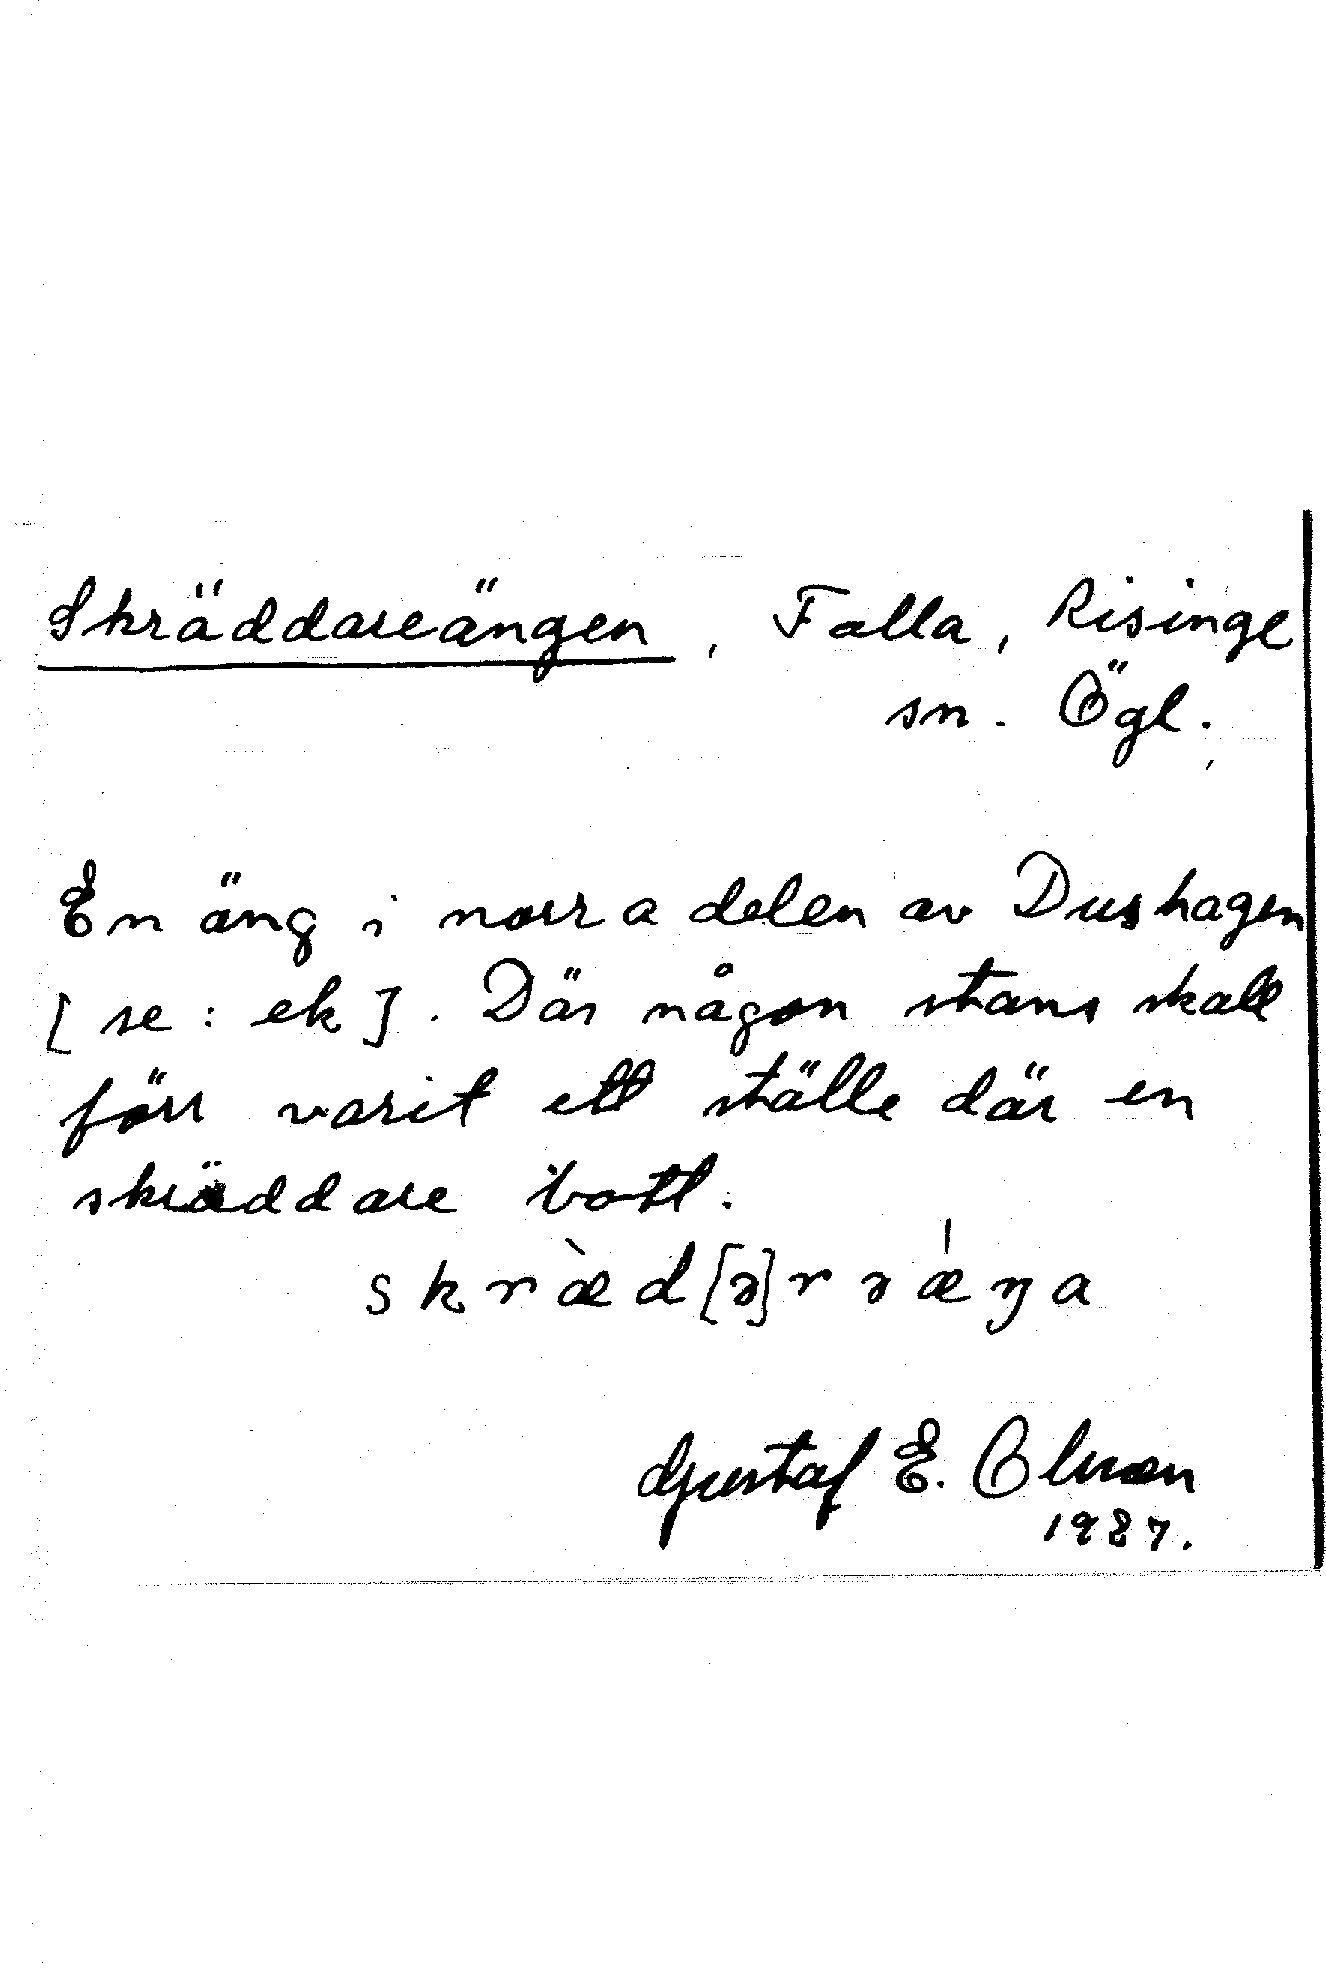 Skräddareängen, Falla, Risinge
sn. Ögl.
En äng i norra delen av Dushagen
[se: ek]. Där någon stans skall
förr varit ett ställe där en
skräddare bott.
skræ̀d[ə]rəǽŋa
Gustaf E. Olsson
1987.